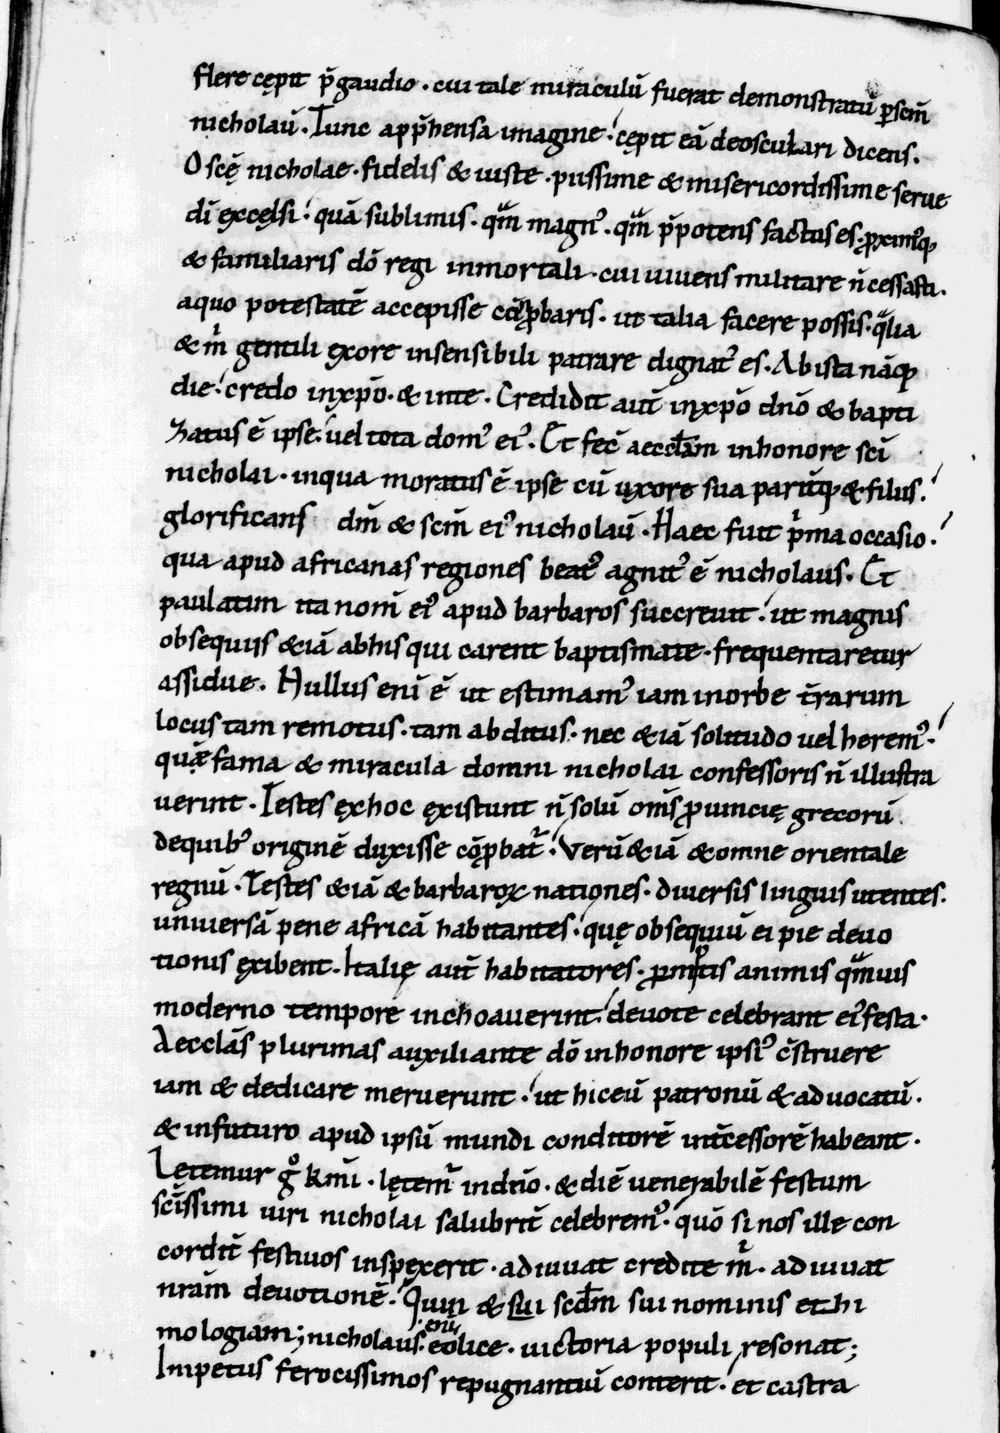 flere cępit p̄ gaudio · cui tale miraculū fuerat demonstratū ꝑ scm̄
nicholaū · Tunc app̄hensa imagine · cępit eā deosculari dicens ·
O scę̄ nicholae · fidelis & iuste · piissime & misericordissime serue
dī excęlsi · quā sublimis · qm̄ magn᾽ · qm̄ p̄potens factus es · ꝓxim᾽q;
& familiaris dō regi inmortali · cui uiuens militare n̄ cessasti ·
aquo potestatē accepisse cō̄ꝓbaris · ut talia facere possis · q̄lia
& m̄ gentili ęxore insensibili patrare dignat᾽ es · Ab ista nāq;
die · credo inxp̄o · & inte · Credidit aut̄ inxp̄o dnō & bapti
zatus ē ipse · uel tota dom᾽ ei᾽ · Et fec̄ aeccłam inhonore sci
nicholai · inqua moratus ē ipse cū uxore sua parit̄q; & filiis ·
glorificans dm̄ & scm̄ ei᾽ nicholaū · Haec fuit p̄ma occasio ·
qua apud africanas regiones beat᾽ agnit᾽ ē nicholaus · Et
paulatim ita nom̄ ei᾽ apud barbaros succreuit · ut magnis
obsequiis &iā abhis qui carent baptismate · frequentaretur
assidue · Nullus enī ē ut estimam᾽ iam inorbe t̄rarum
locus tam remotus · tam abditus · nec &iā solitudo uel herem᾽ ·
quę fama & miracula domni nicholai confessoris n̄ illustra
uerint · Testes ęxhoc ęxistunt n̄ solū om̄s ꝓuincię grecorū
dequib᾽ originē duxisse cōꝓbat᷑ · Verū &iā & omne orientale
regnū · Testes &iā & barbaroꝝ nationes · diuersis linguis utentes ·
uniuersā pene africā habitantes · quę obsequiū ei pie deuo
tionis ęxibent · Italię aut̄ habitatores · ꝓmptis animis qm̄uis
moderno tempore inchoauerint · deuote celebrant ei᾽ festa ·
Aecclās plurimas auxiliante dō inhonore ipsi᾽ c̄struere
iam & dedicare meruerunt · ut hic eū patronū & aduocatū ·
& infuturo apud ipsū mundi conditorē int̄cessorē habeant ·
Lętemur gͦ kmī · lętem᷑ indnō · & diē uenerabilē festum
sc̄issimi uiri nicholai salubrit̄ celebrem᾽ · quō si nos ille con
cordit̄ festiuos inspęxerit · adiuuat credite m̄ · adiuuat
nr̄am devotionē · Qui & sui scd̄m sui nominis et hi
mologiam; nicholaus · eni eolice · uictoria populi resonat;
Impetus ferocissimos repugnantiū conterit · et castra